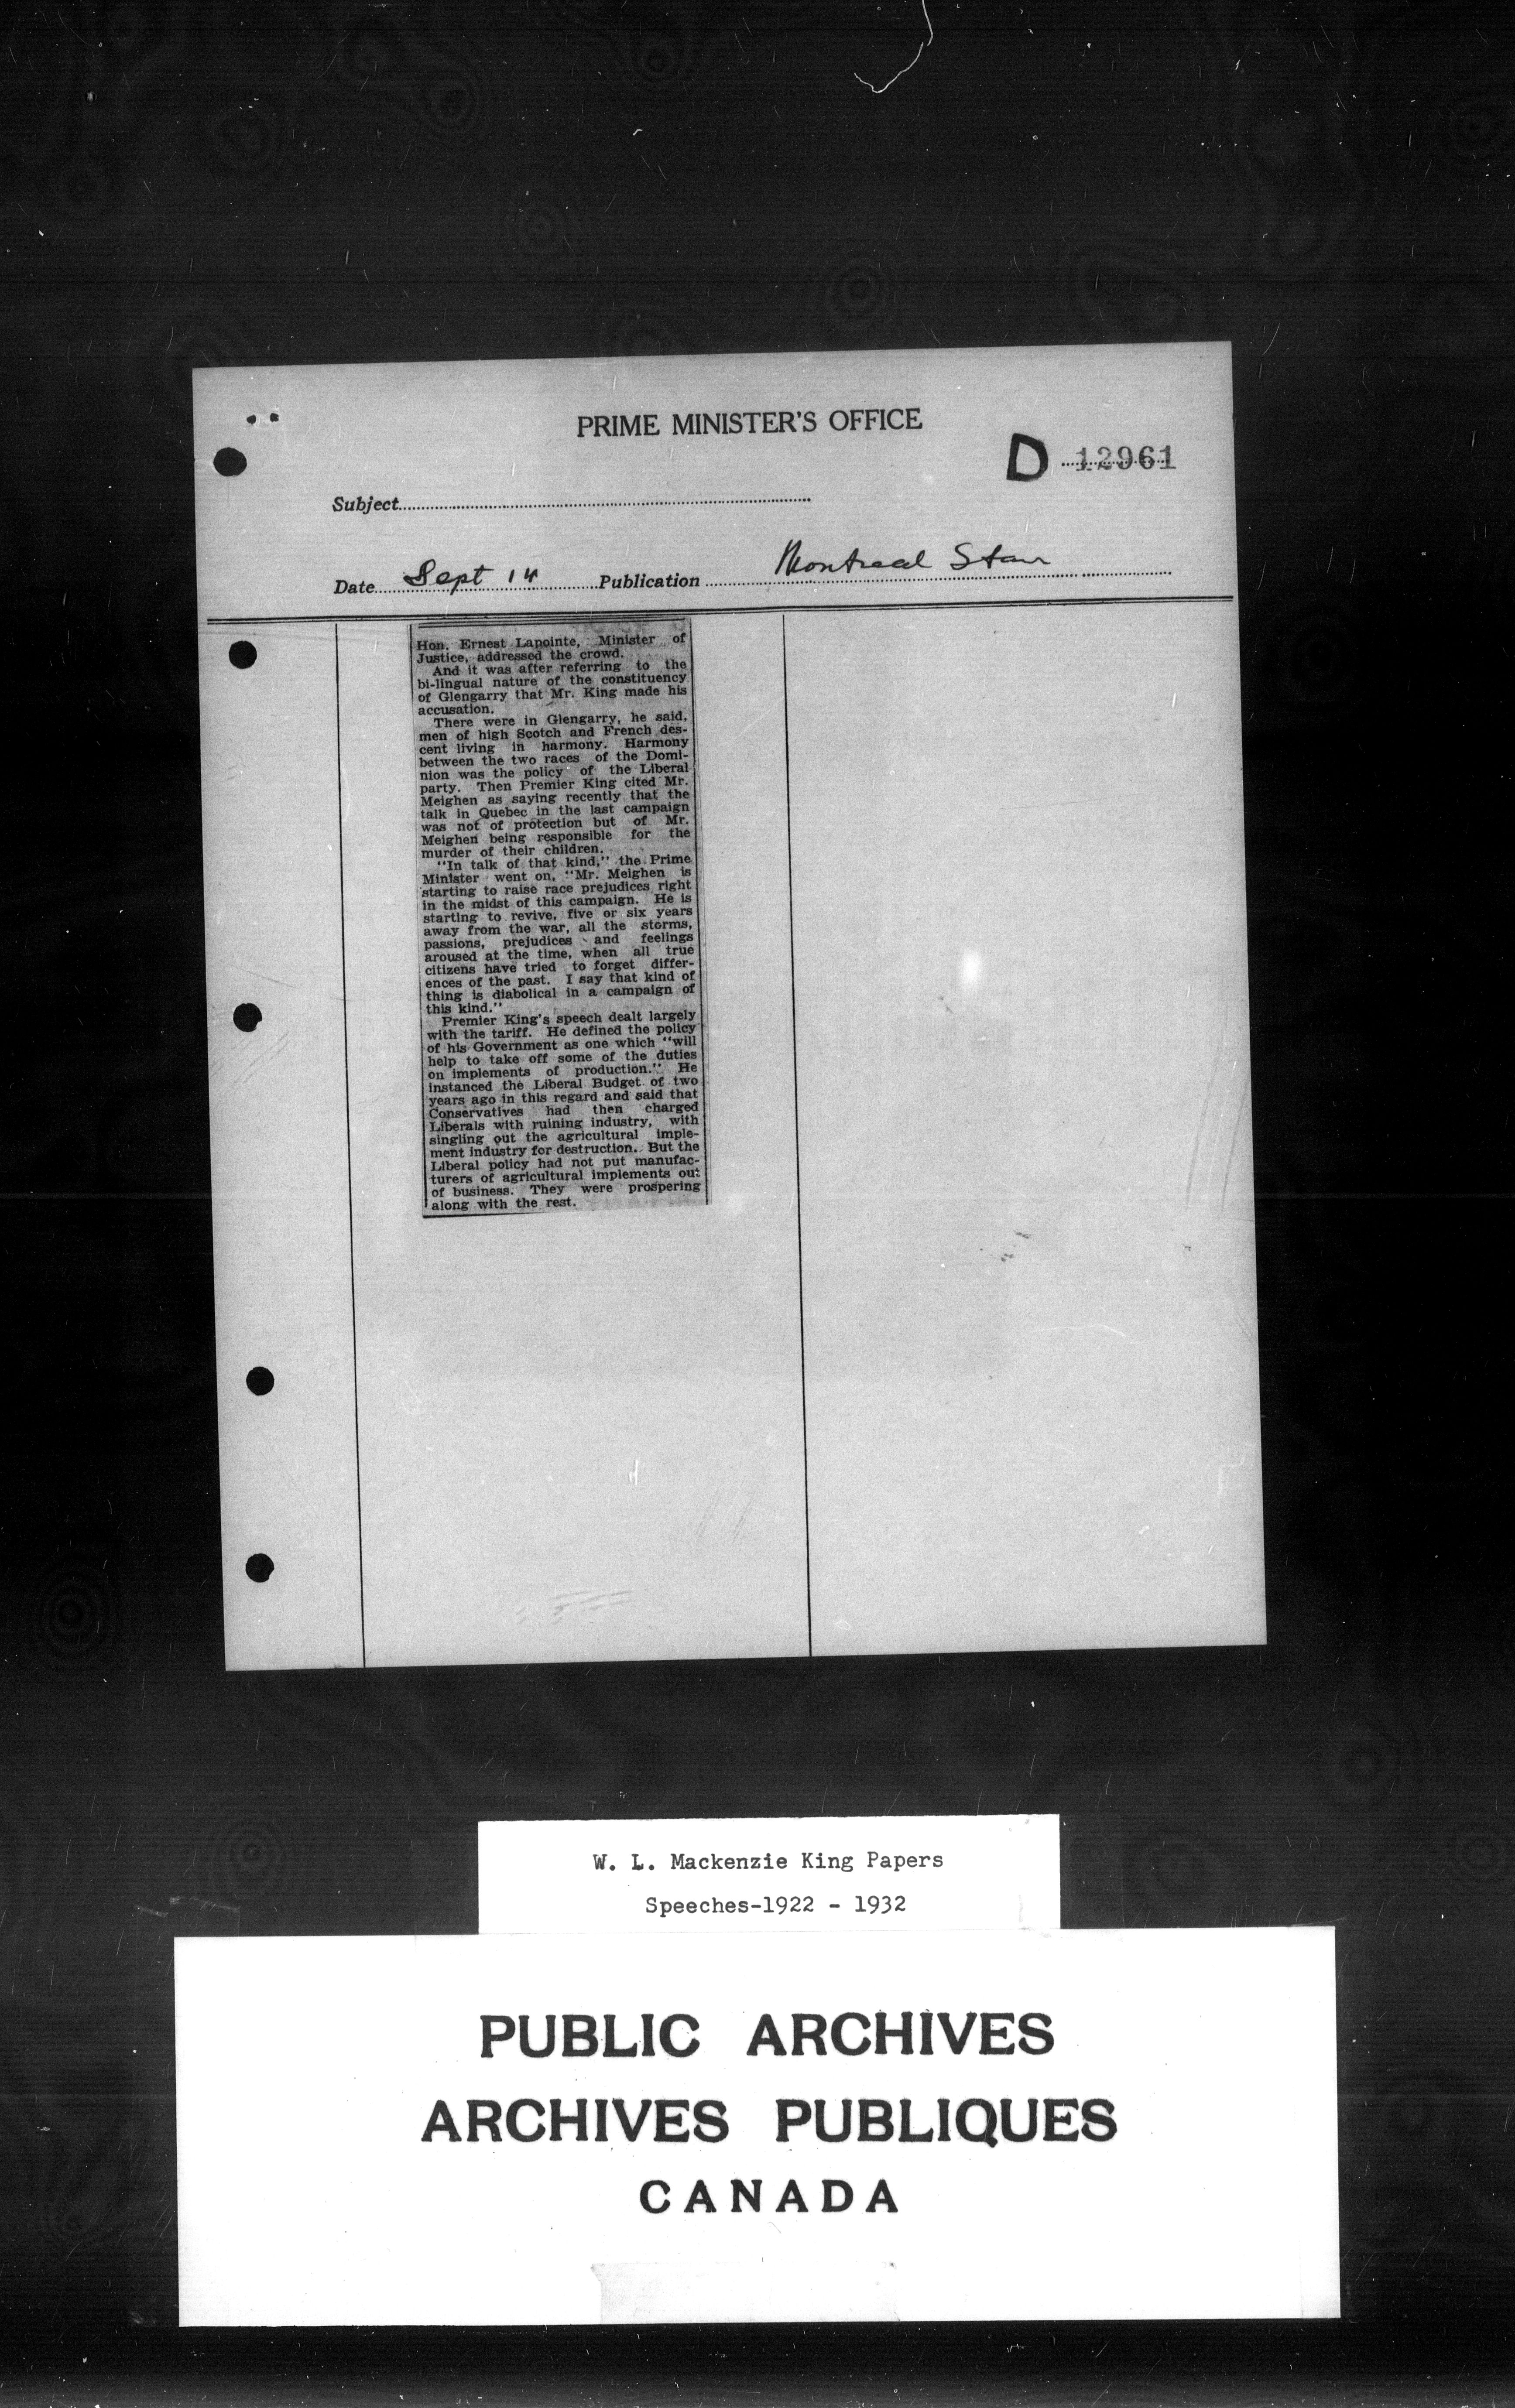 PRIME MINISTER'S OFFICE
D 12961
Subject
Date Sept 14 Publication Montreal Star
Hon. Ernest Lapointe, Minister of
Justice, addressed the crowd.
And it was after referring to the
bi-lingual nature of the constituency
of Glengarry that Mr. King made his
accusation.
There were in Glengarry, he said,
men of high Scotch and French des-
cent living in harmony. Harmony
between the two races of the Domi-
nion was the policy of the Liberal
party. Then Premier King cited Mr.
Meighen as saying recently that the
talk in Quebec in the last campaign
was not of protection but of Mr.
Meighen being responsible for the
murder of their children.
"In talk of that kind," the Prime
Minister went on, "Mr. Meighen is
starting to raise race prejudices right
in the midst of this campaign. He is
starting to revive, five or six years
away from the war, all the storms,
passions, prejudices and feelings
aroused at the time, when all true
citizens have tried to forget differ-
ences of the past. I say that kind of
thing is diabolical in a campaign of
this kind."
Premier King's speech dealt largely
with the tariff. He defined the policy
of his Government as one which "will
help to take off some of the duties
on implements of production." He
instanced the Liberal Budget of two
years ago in this regard and said that
Conservatives had then charged
Liberals with ruining industry, with
singling out the agricultural imple-
ment industry for destruction. But the
Liberal policy had not put manufac-
turers of agricultural implements out
of business. They were prospering
along with the rest.
W. L. Mackenzie King Papers
Speeches-1922 - 1932
PUBLIC ARCHIVES
ARCHIVES PUBLIQUES
CANADA